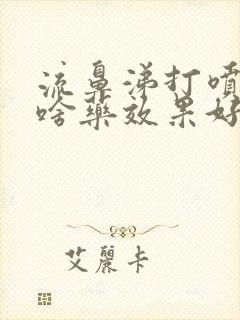 流鼻涕打噴
啥藥效果好
艾麗卡